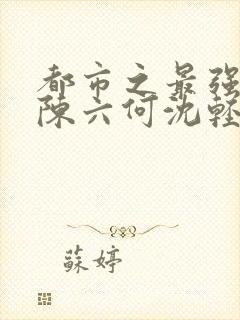 都市之最强
陈六何沈轻
蘇婷